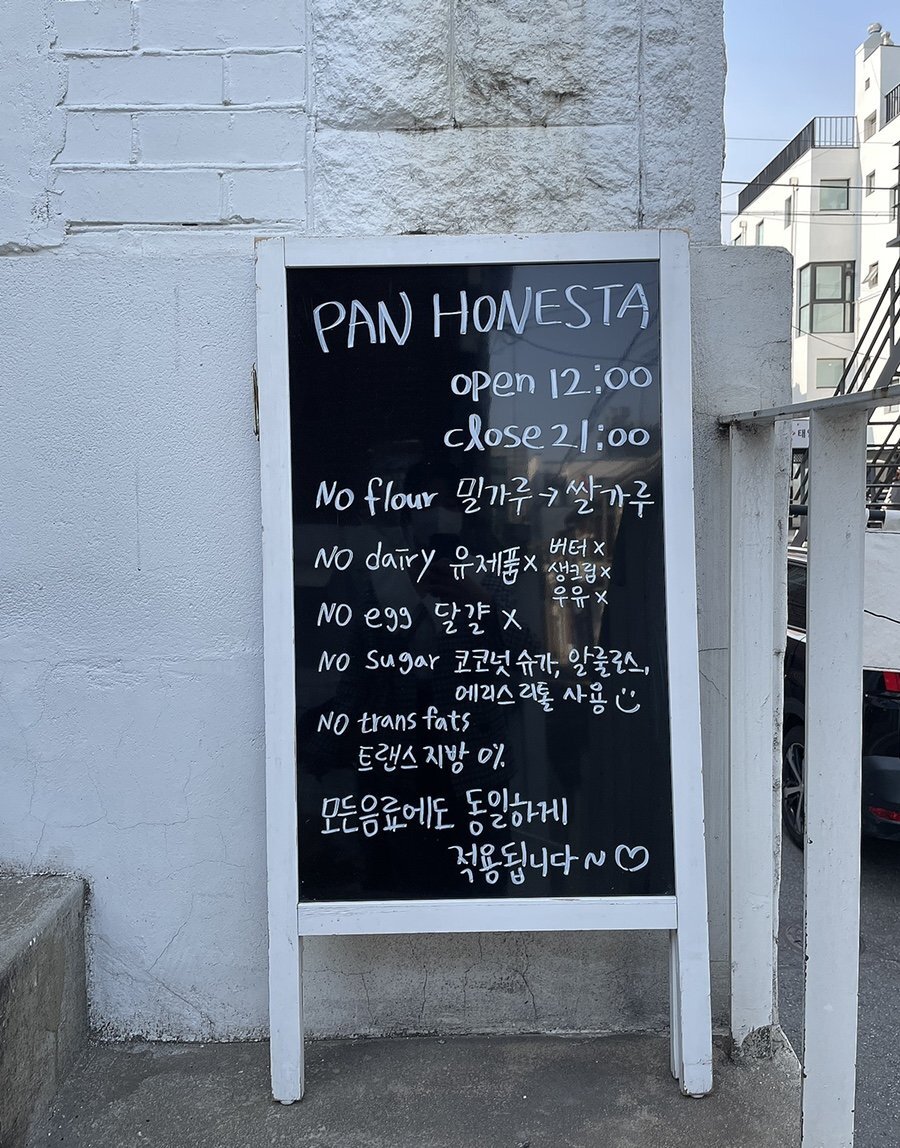 PAN HONESTA
open 12:00
close 21:00
NO flour 밀가루 → 쌀가루
NO dairy 유제품x 버터 x
생크림x
우유 x
NO egg 달걀 x
NO sugar 코코넛 슈가, 알룰로스,
에리스리톨 사용
NO trans fats
트랜스지방 0%
모든음료에도 동일하게
적용됩니다~♡